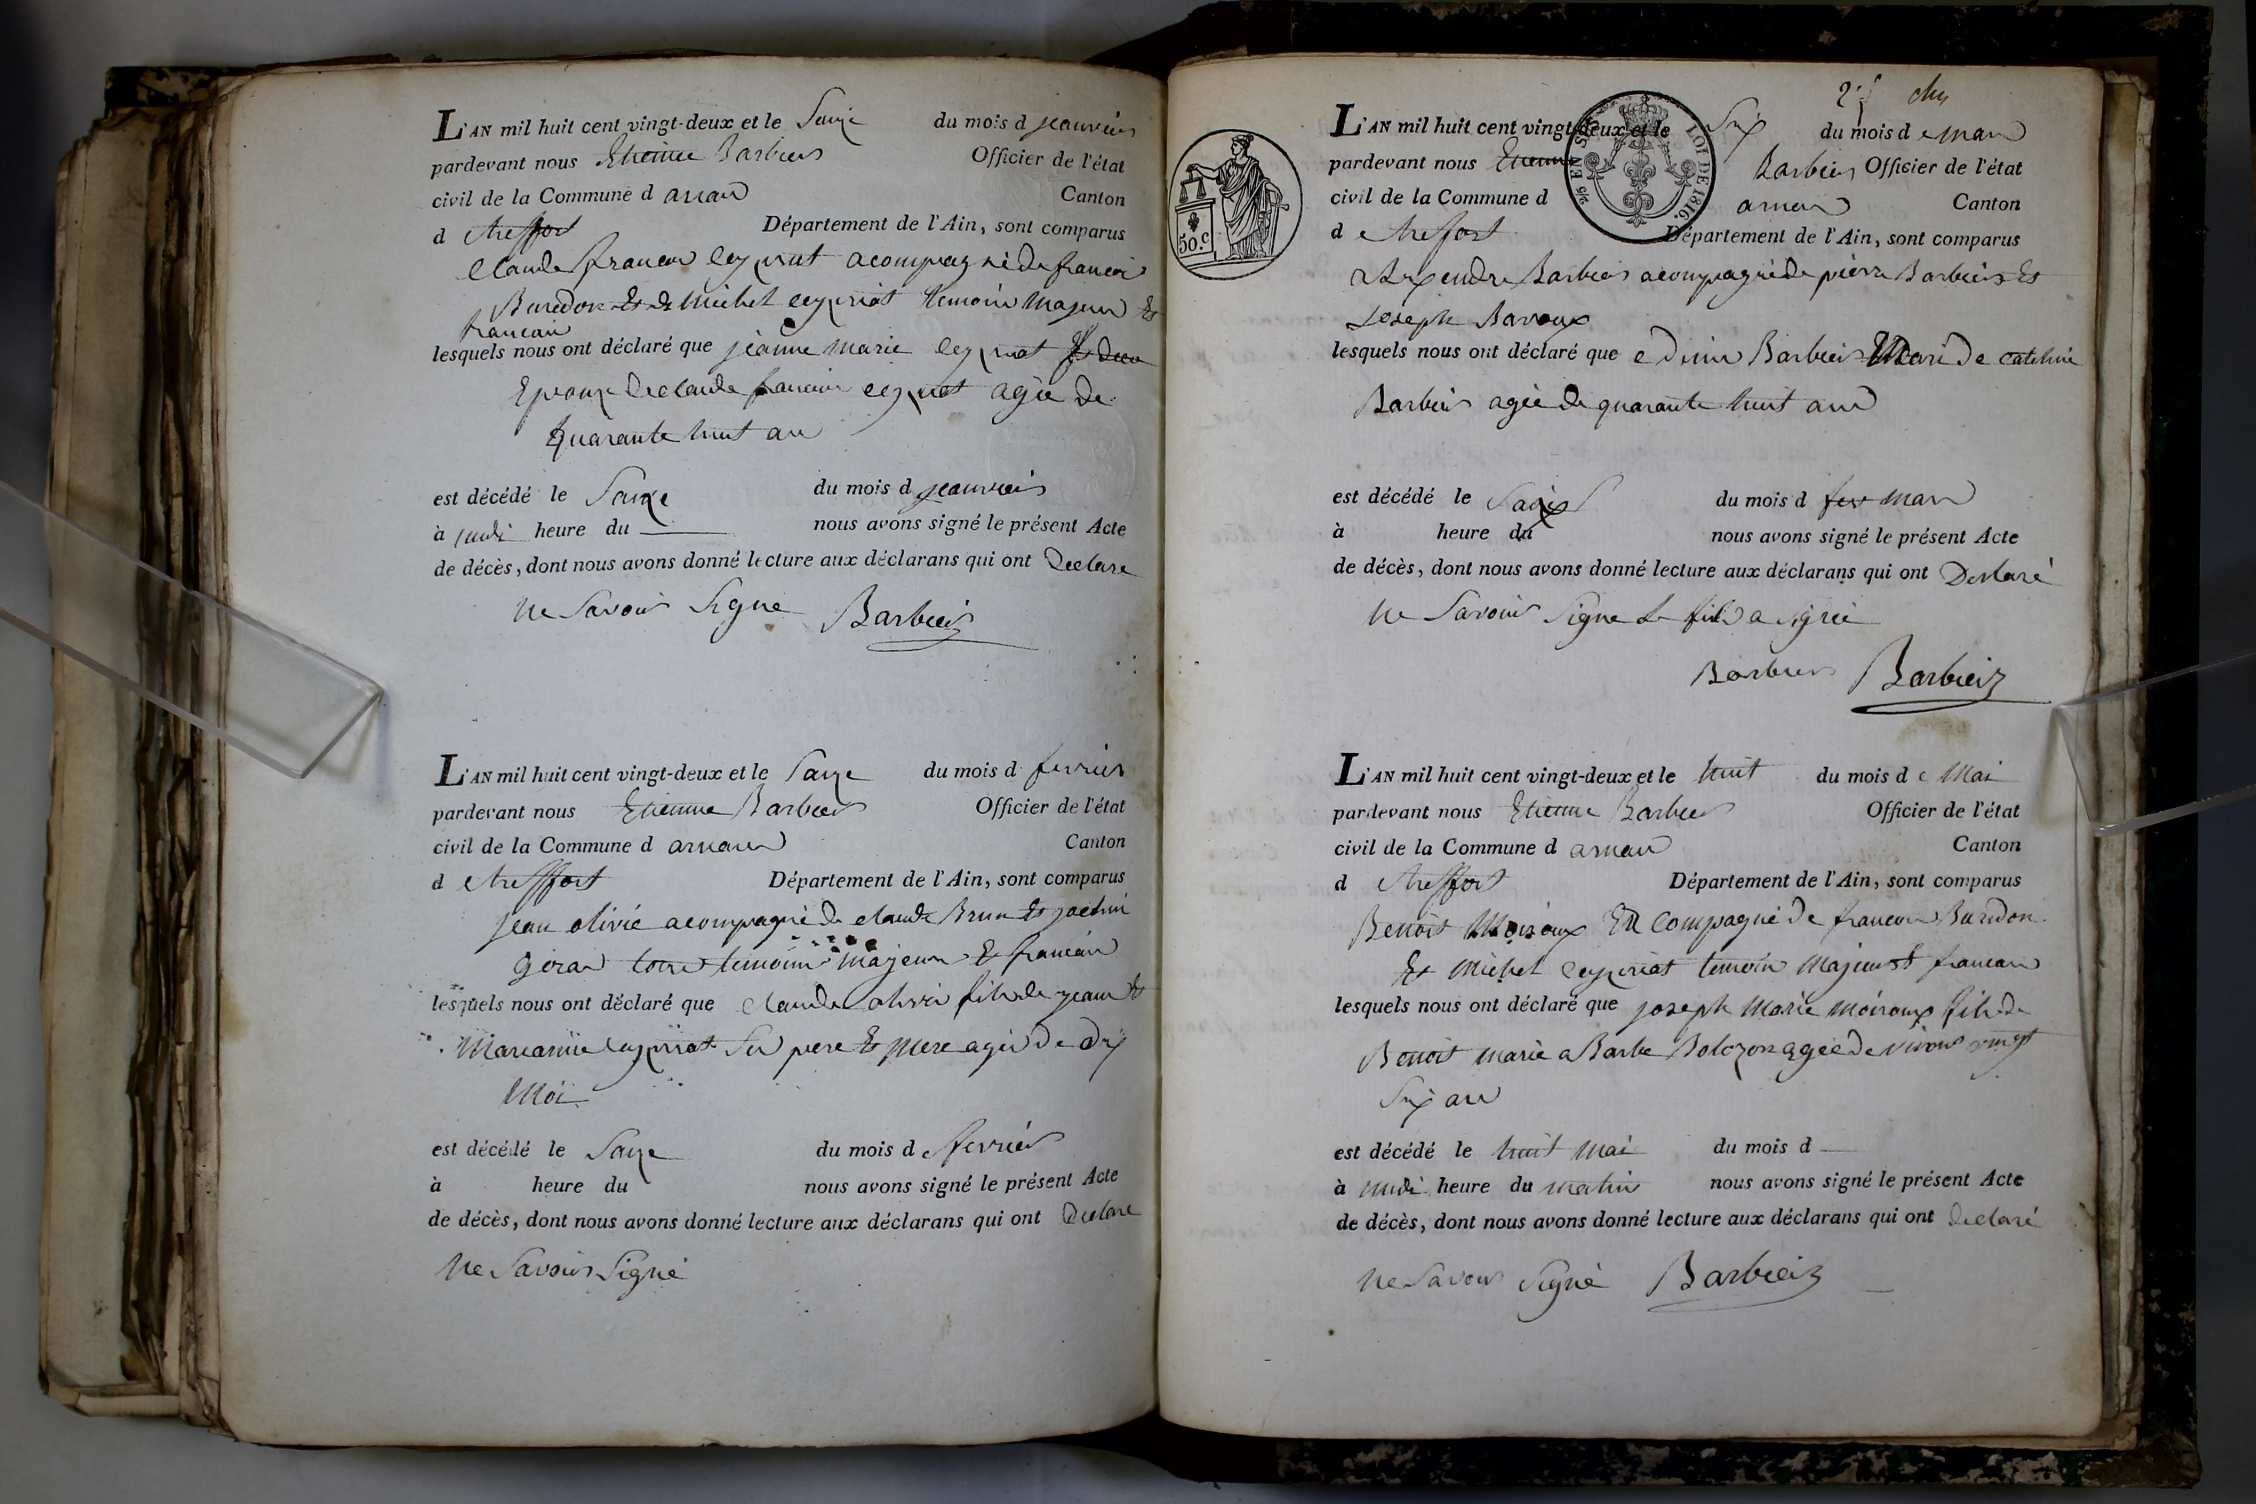 L'AN mil huit cent vingt-deux et le Saize du mois d jeanvier
pardevant nous Etienne Barbier Officier de l'état
civil de la Commune d arnan Canton
d etreffort Département de l'Ain, sont comparus
Claude francoi ceyzriat acompagné de francoi
Buredon Et de Michel ceyzriat temoin majeur Et
francain
lesquels nous ont déclaré que jeanne marie ceyzriat
Epouze de Claude francoi ceyzriat agée de
quarante huit an
est décédé le Saize du mois d jeanvier
à midi heure du nous avons signé le présent Acte
de décès, dont nous avons donné lecture aux déclarans qui ont Declare
ne Savoir Signe Barbier
L'AN mil huit cent vingt-deux et le Saize du mois d fevrier
pardevant nous Etienne Barbier Officier de l'état
civil de la Commune d arnan Canton
d etreffort Département de l'Ain, sont comparus
jean olivié acompagné de claude Brun Et joachin
temoin majeur Et francain
lesquels nous ont déclaré que claude fils de jean Et
Marianne ceyzriat Ses pere Et mere agée de dix
Moi
est décédé le Saize du mois d fevrier
à heure du nous avons signé le présent Acte
de décès, dont nous avons donné lecture aux déclarans qui ont Declare
ne Savoir Signé
L'AN mil huit cent vingt-deux et le Six du mois d e mars
pardevant nous Etienne Barbier Officier de l'état
civil de la Commune d arnan Canton
d etreffort Département de l'Ain, sont comparus
Barbier acompagné de pierre Barbier Et
Joseph Bavoux
lesquels nous ont déclaré que Barbier Mari de
Barbier agée de quarante huit an
est décédé le du mois d mars
à heure du nous avons signé le présent Acte
de décès, dont nous avons donné lecture aux déclarans qui ont Declaré
ne Savoir Signe Le fils a signé
Barbier Barbier
LOI DE 1816.
50.c
L'AN mil huit cent vingt-deux et le huit du mois d e Mai
pardevant nous Etienne Barbier Officier de l'état
civil de la Commune d arnan Canton
d etreffort Département de l'Ain, sont comparus
Benoit Moiroux En Compagnie de francoi Buredon
Et Michel ceyzriat temoin Majeur Et francain
lesquels nous ont déclaré que joseph Marie Moiroux fils de
Benoit Marie a Barbe Bolozon agée de viron vingt
Six an
est décédé le huit Mai du mois d
à midi heure du matin nous avons signé le présent Acte
de décès, dont nous avons donné lecture aux déclarans qui ont declaré
ne Savoir Signé Barbier